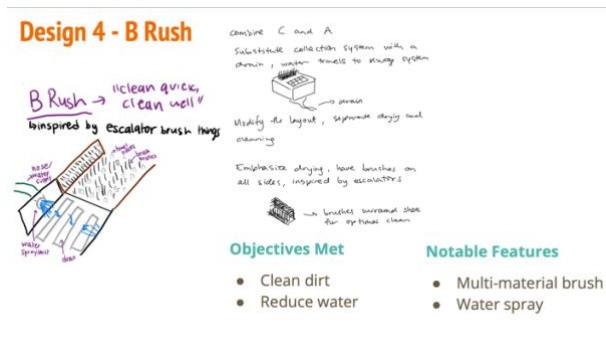 Design 4 - B Rush
B Rush → "clean quick,
clean well"
↳inspired by escalator brush things
water
spray
drain
combine C and A
Substitute collection system with a
drain, water travels to system
→ drain
Modify the layout, separate drying and
cleaning
Emphasize drying, have brushes on
all sides, inspired by escalators
→ brushes surround shoe
for optimal clean
Objectives Met
● Clean dirt
● Reduce water
Notable Features
● Multi-material brush
● Water spray